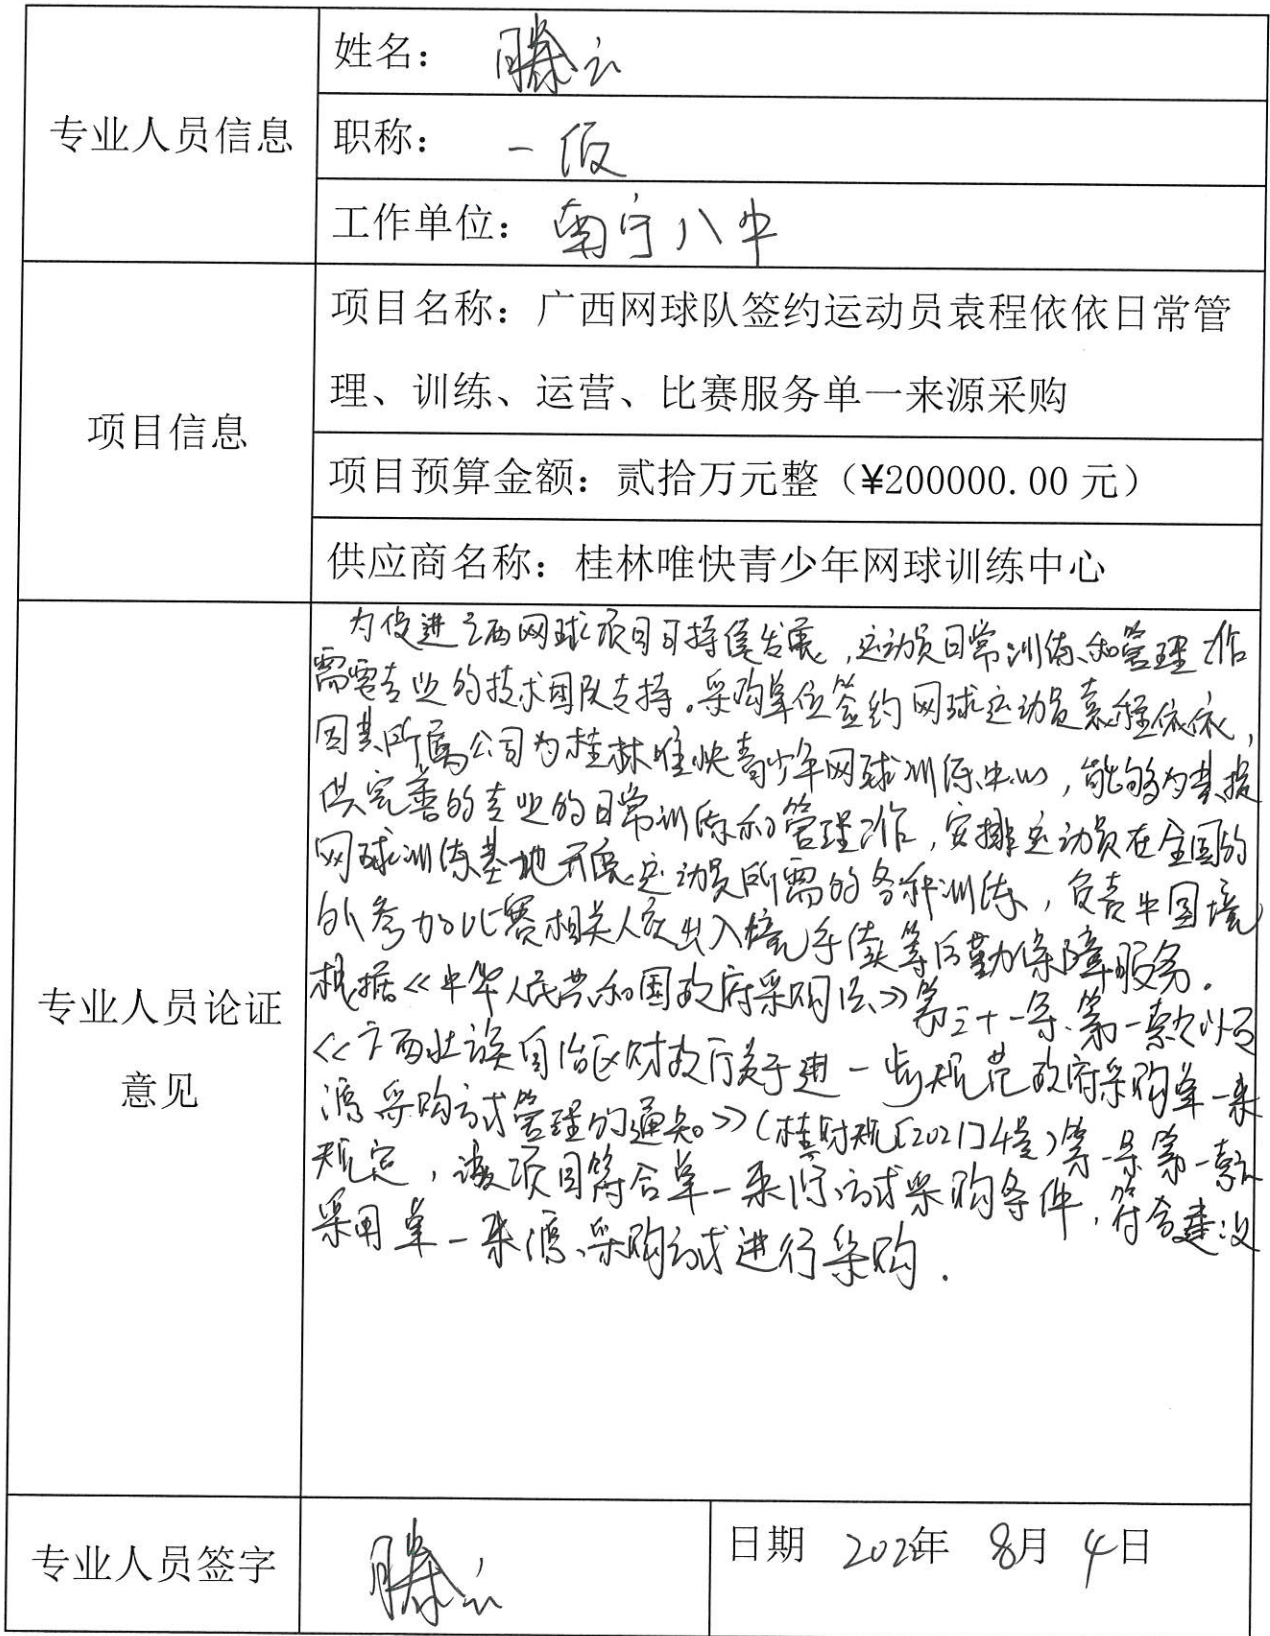 专业人员信息
姓名： 滕云
职称： 一级
工作单位： 南宁八中
项目信息
项目名称：广西网球队签约运动员袁程依依日常管
理、训练、运营、比赛服务单一来源采购
项目预算金额：贰拾万元整（¥200000.00 元）
供应商名称：桂林唯快青少年网球训练中心
专业人员论证
意见
为促进广西网球项目可持续发展，运动员日常训练和管理工作
需要专业的技术团队支持。采购单位签约网球运动员袁程依依，
因其所属公司为桂林唯快青少年网球训练中心，能够为其提
供完善的专业的日常训练和管理工作，安排运动员在全国的
网球训练基地开展运动员所需的各种训练，负责中国境
外参加比赛相关人员出入境手续等后勤保障服务。
根据《中华人民共和国政府采购法》第三十一条第一款以及
《广西壮族自治区财政厅关于进一步规范政府采购单一来
源采购方式管理的通知》（桂财规〔2021〕4号）第一条第一款
规定，该项目符合单一来源方式采购条件，符合建议
采用单一来源采购方式进行采购.
专业人员签字
滕云
日期 2022年 8月 4日